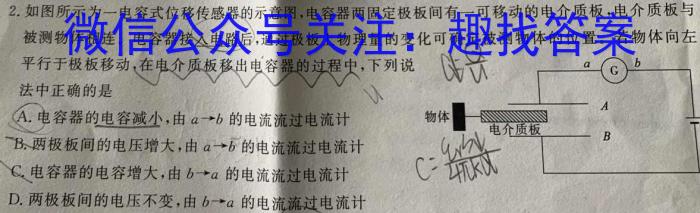 2.如图所示为一电容式位移传感器的示意图,电容器两固定极板间有一可移动的电介质板,电介质板与
被测物体相连,电容器接入电路后,通过极板上物理量的变化可确定被测物体的位置。若物体向左
微信公众号关注：趣找答案
平行于极板移动,在电介质板移出电容器的过程中,下列说
法中正确的是
A.电容器的电容减小,由a→b的电流流过电流计
B.两极板间的电压增大,由a→b的电流流过电流计
C.电容器的电容增大,由b→a的电流流过电流计
D.两极板间的电压不变,由b→a的电流流过电流计
a G b
A
物体
电介质板
B